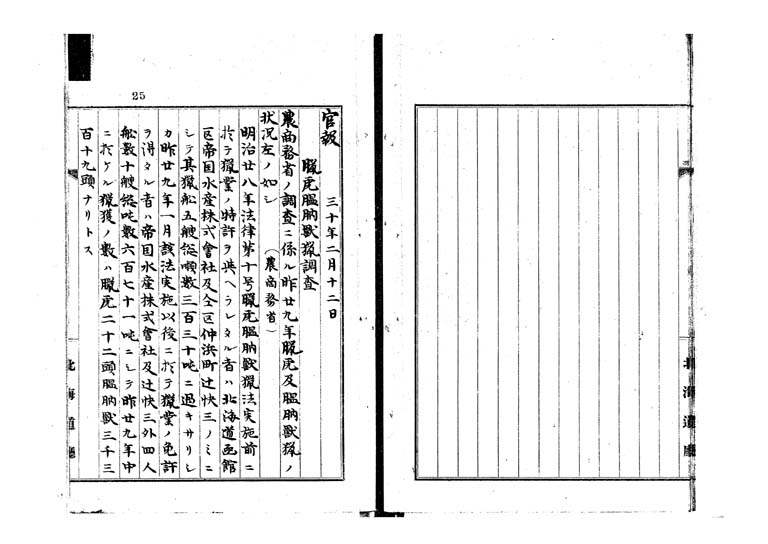 25
官報　三十年二月十二日
臘虎膃肭獣猟調査
農商務省ノ調査ニ係ル昨廿九年臘虎及膃肭獣猟ノ
状况左ノ如シ　（農商務省）
明治廿八年法律第十号臘虎膃肭獣猟法実施前ニ
於テ猟業ノ特許ヲ與ヘラレタル者ハ北海道函館
区帝国水産株式會社及仝区仲浜町辻快三ノミニ
シテ其猟舩五艘総噸数三百三十吨ニ過キサリシ
カ昨廿九年一月該法実施以後ニ於テ猟業ノ免許
ヲ得タル者ハ帝国水産株式會社及辻快三外四人
舩数十艘総吨数六百七十一吨ニシテ昨廿九年中
ニ於ケル猟獲ノ数ハ臘虎二十二頭膃肭獣三千三
百十九頭ナリトス
北海道廳
北海道廳